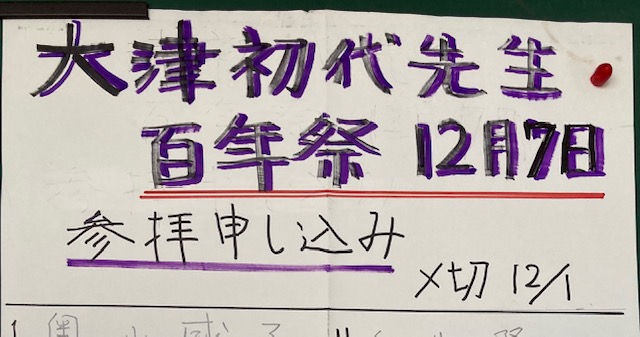 大津初代先生
百年祭 12月7日
参拝申し込み
〆切 12/1